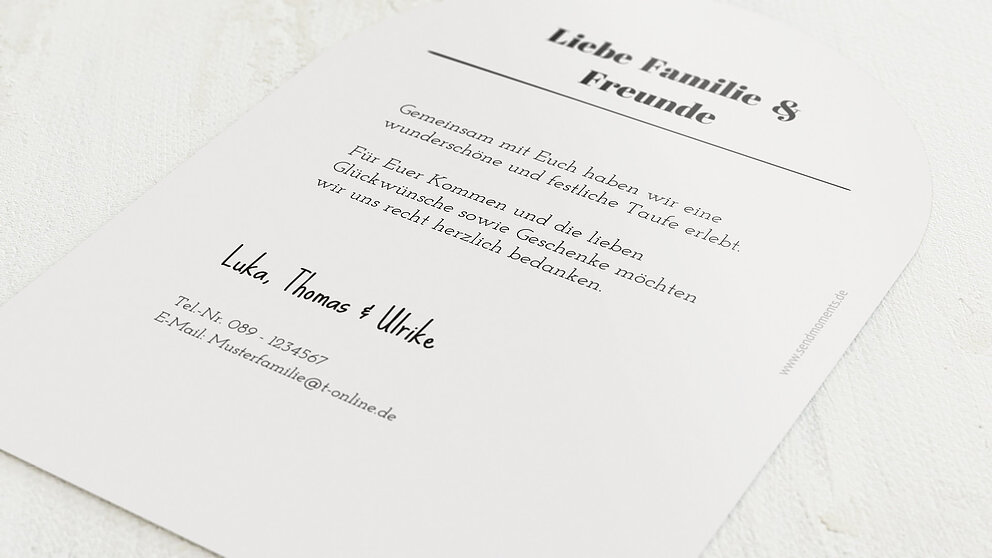 Liebe Familie &
Freunde
Gemeinsam mit Euch haben wir eine
wunderschöne und festliche Taufe erlebt.
Für Euer Kommen und die lieben
Glückwünsche sowie Geschenke möchten
wir uns recht herzlich bedanken.
Luka, Thomas & Ulrike
Tel.-Nr. 089 - 1234567
E-Mail: Musterfamilie@t-online.de
www.sendmoments.de